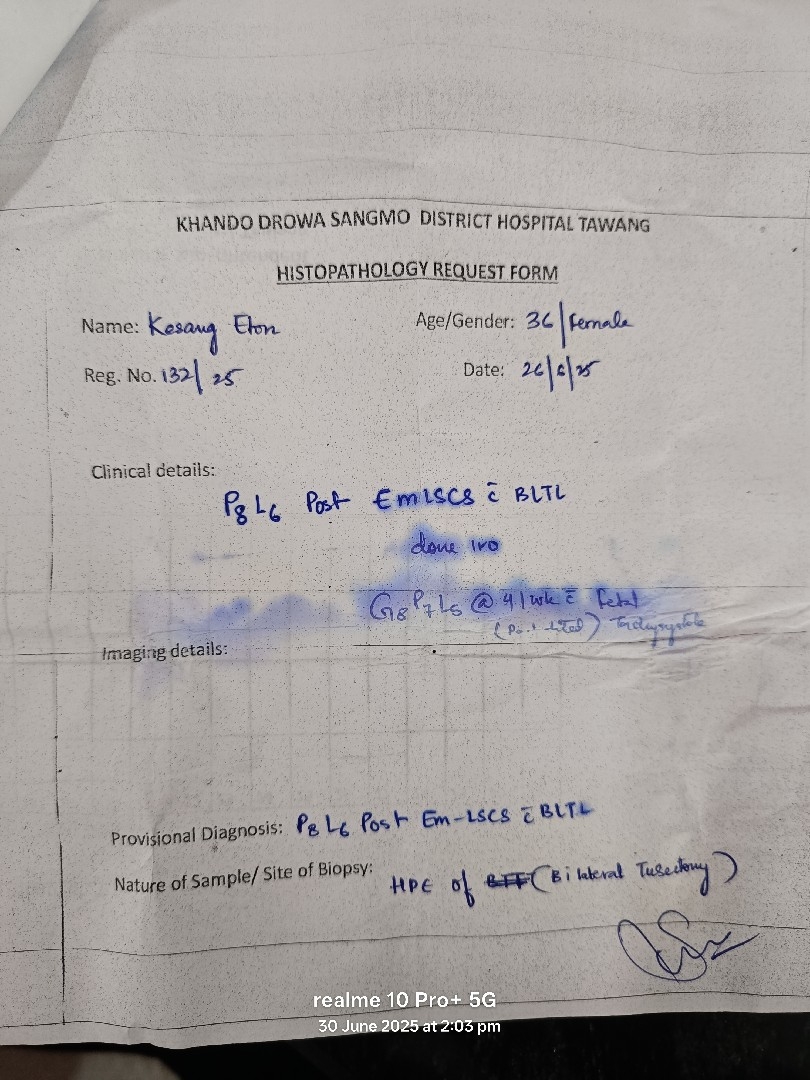 KHANDO DROWA SANGMO DISTRICT HOSPITAL TAWANG
HISTOPATHOLOGY REQUEST FORM
Name: Kesang Eton Age/Gender: 36/Female
Reg. No. 132/25 Date: 26/6/25
Clinical details:
P8 L6 Post Em LSCS c̄ BLTL
done ivo
G8P7L5 @ 41wk c̄ fetal
Imaging details:
Provisional Diagnosis: P8 L6 Post Em-LSCS c̄ BLTL
Nature of Sample/ Site of Biopsy: HPE of (Bilateral Tusectomy)
realme 10 Pro+ 5G
30 June 2025 at 2:03 pm